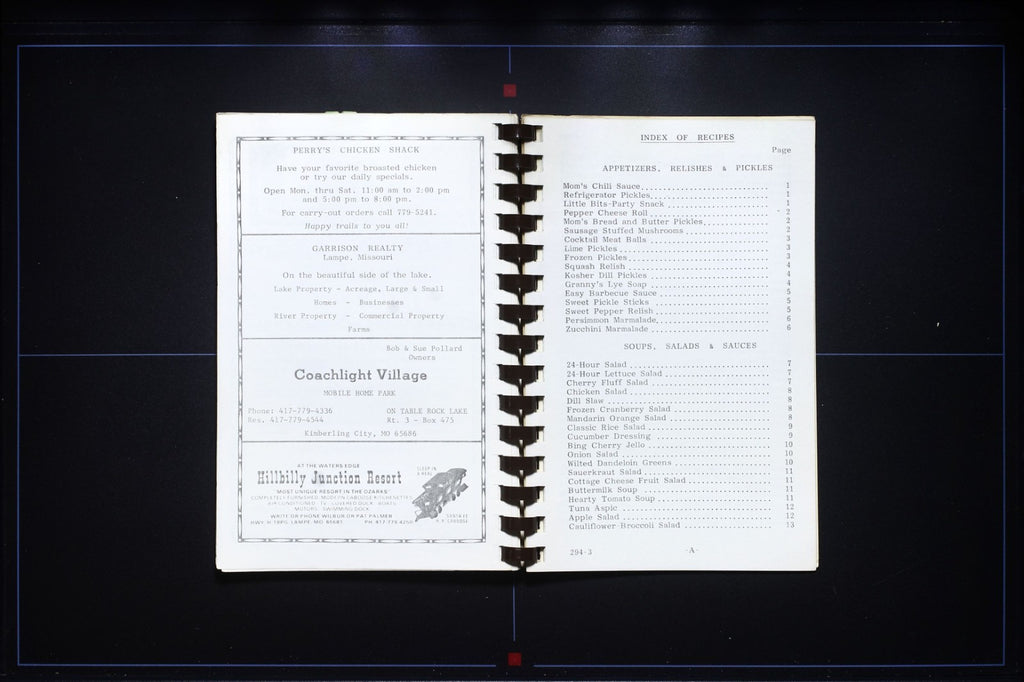 PERRY'S CHICKEN SHACK
Have your favorite broasted chicken
or try our daily specials.
Open Mon. thru Sat. 11:00 am to 2:00 pm
and 5:00 pm to 8:00 pm.
For carry-out orders call 779-5241.
Happy trails to you all!
GARRISON REALTY
Lampe, Missouri
On the beautiful side of the lake.
Lake Property - Acreage, Large & Small
Homes - Businesses
River Property - Commercial Property
Farms
Bob & Sue Pollard
Owners
Coachlight Village
MOBILE HOME PARK
Phone: 417-779-4336 ON TABLE ROCK LAKE
Res. 417-779-4544 Rt. 3 - Box 475
Kimberling City, MO 65686
AT THE WATERS EDGE
Hillbilly Junction Resort
SLEEP IN
A REAL
"MOST UNIQUE RESORT IN THE OZARKS"
COMPLETELY FURNISHED MODERN LAKESIDE KITCHENETTES
AIR CONDITIONED TV COVERED DOCK BOATS
MOTORS SWIMMING DOCK
WRITE OR PHONE WILBUR OR PAT PALMER
LAMPE, MO. 65681
SANTA FE
R.R. CABOOSE
INDEX OF RECIPES
Page
APPETIZERS, RELISHES & PICKLES
Mom's Chili Sauce 1
Refrigerator Pickles 1
Little Bits-Party Snack 1
Pepper Cheese Roll 2
Mom's Bread and Butter Pickles 2
Sausage Stuffed Mushrooms 2
Cocktail Meat Balls 3
Lime Pickles 3
Frozen Pickles 3
Squash Relish 4
Kosher Dill Pickles 4
Granny's Lye Soap 4
Easy Barbecue Sauce 5
Sweet Pickle Sticks 5
Sweet Pepper Relish 5
Persimmon Marmalade 6
Zucchini Marmalade 6
SOUPS, SALADS & SAUCES
24-Hour Salad 7
24-Hour Lettuce Salad 7
Cherry Fluff Salad 7
Chicken Salad 8
Dill Slaw 8
Frozen Cranberry Salad 8
Mandarin Orange Salad 8
Classic Rice Salad 9
Cucumber Dressing 9
Bing Cherry Jello 10
Onion Salad 10
Wilted Dandeloin Greens 10
Sauerkraut Salad 11
Cottage Cheese Fruit Salad 11
Buttermilk Soup 11
Hearty Tomato Soup 11
Tuna Aspic 12
Apple Salad 12
Cauliflower-Broccoli Salad 13
294-3 -A-